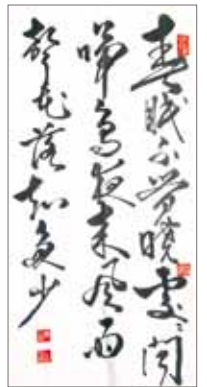 春眠不觉晓处处闻
啼鸟夜来风雨
声花落知多少